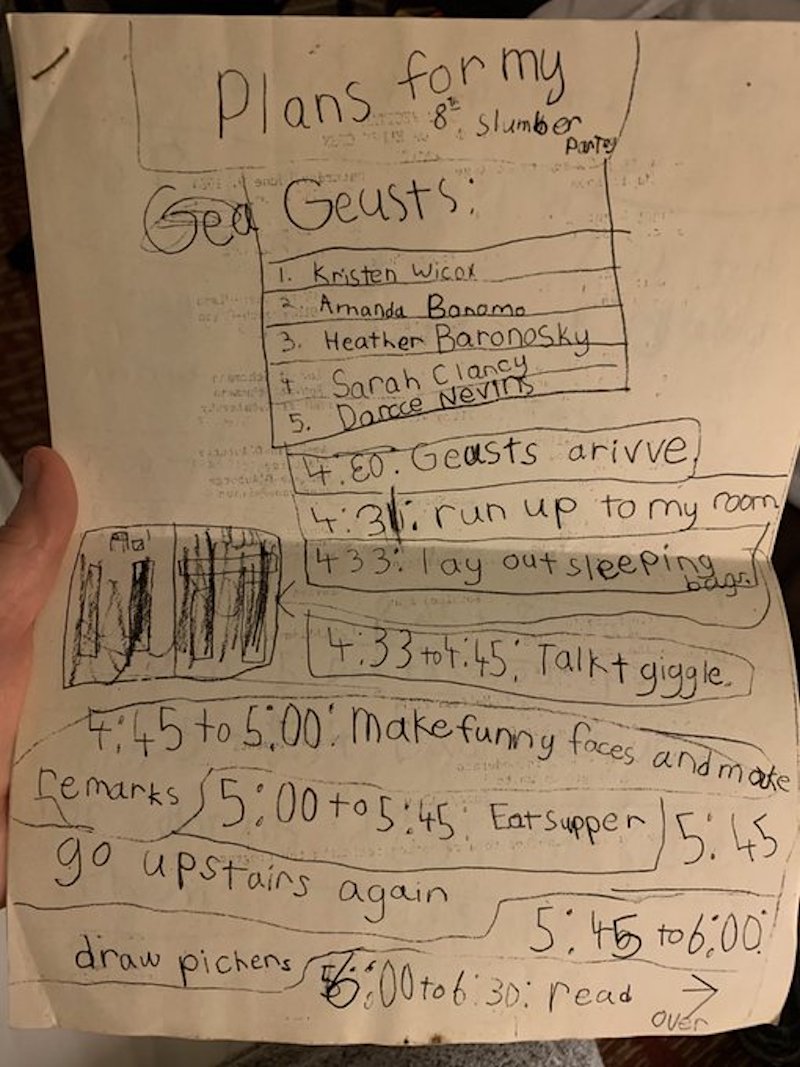 Plans for my
8th Slumber
Partey
Gea Geusts:
1. Kristen Wicox
2. Amanda Bonomo
3. Heather Baronosky
4. Sarah Clancy
5. Darcce Nevins
4:30: Geusts arivve
4:31: run up to my room
433: lay out sleeping
bags
4:33 to 4:45: Talk + giggle.
4:45 to 5:00: Make funny faces and make
remarks
5:00 to 5:45: Eat supper
5:45
go upstairs again
5:45 to 6:00:
draw pichers
6:00 to 6:30: read
over